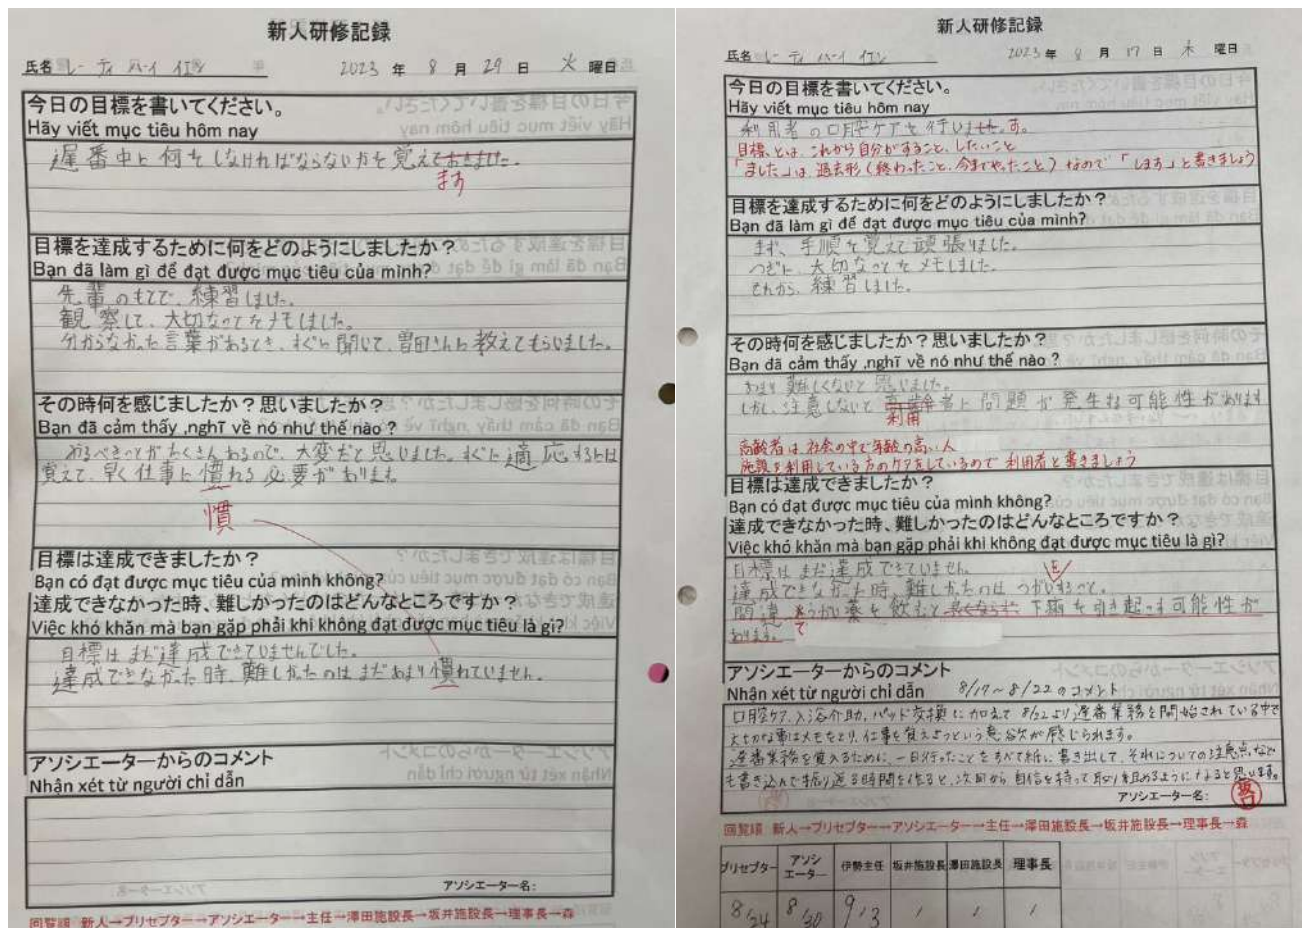 新人研修記録
氏名 レーティ ハーイ イエン 2023 年 8 月 29 日 火 曜日
今日の目標を書いてください。
Hãy viết mục tiêu hôm nay
遅番中に何をしなければならないかを覚えておきました。
ます
目標を達成するために何をどのようにしましたか？
Bạn đã làm gì để đạt được mục tiêu của mình?
先輩のもとで、練習しました。
観察して、大切なことをメモしました。
分からなかった言葉があるとき、すぐに聞いて、曽田さんに教えてもらいました。
その時何を感じましたか？思いましたか？
Bạn đã cảm thấy ,nghĩ về nó như thế nào ?
おるべきことがたくさんあるので、大変だと思いました。すぐに適応するには
覚えて、早く仕事に慣れる必要があります。
慣
目標は達成できましたか？
Bạn có đạt được mục tiêu của mình không?
達成できなかった時、難しかったのはどんなところですか？
Việc khó khăn mà bạn gặp phải khi không đạt được mục tiêu là gì?
目標はまだ達成できていませんでした。
達成できなかった時、難しかったのはまだあまり慣れていません。
アソシエーターからのコメント
Nhận xét từ người chỉ dẫn
アソシエーター名：
回覧順 新人→プリセプター→アソシエーター→主任→澤田施設長→坂井施設長→理事長→森
新人研修記録
氏名 レーティ ハーイ イエン 2023 年 8 月 17 日 木 曜日
今日の目標を書いてください。
Hãy viết mục tiêu hôm nay
利用者の口腔ケアを行います。
目標とは、これから自分がすること、したいこと
「ました」は過去形（終わったこと、今までやったこと）なので「します」と書きましょう
目標を達成するために何をどのようにしましたか？
Bạn đã làm gì để đạt được mục tiêu của mình?
まず、手順を覚えて頑張りました。
つぎに、大切なことをメモしました。
それから、練習しました。
その時何を感じましたか？思いましたか？
Bạn đã cảm thấy ,nghĩ về nó như thế nào ?
あまり難しくないと思いました。
しかし、注意しないと高齢者に問題が発生な可能性があります
利用
高齢者は社会の中で年齢の高い人
施設を利用している方のケアをしているので利用者と書きましょう
目標は達成できましたか？
Bạn có đạt được mục tiêu của mình không?
達成できなかった時、難しかったのはどんなところですか？
Việc khó khăn mà bạn gặp phải khi không đạt được mục tiêu là gì?
目標はまだ達成できていません。
を
達成できなかった時、難しかったのは つかいすること。
間違 薬を飲むと 下痢を引き起こす可能性が
あります。 て
アソシエーターからのコメント
Nhận xét từ người chỉ dẫn 8/17～8/22のコメント
口腔ケア、入浴介助、パッド交換に加えて8/22より遅番業務を開始されている中で
大切な事はメモをとり、仕事を覚えようという意欲が感じられます。
遅番業務を覚えるために、一日行ったことをすべて紙に書き出して、それについての注意点なども書き込んで振り返る時間を作ると、次回から自信を持って取り組めるようになると思います。
アソシエーター名： 坂口
回覧順 新人→プリセプター→アソシエーター→主任→澤田施設長→坂井施設長→理事長→森
プリセプター アソシエーター 伊勢主任 坂井施設長 澤田施設長 理事長
8/24 8/30 9/3 / / /